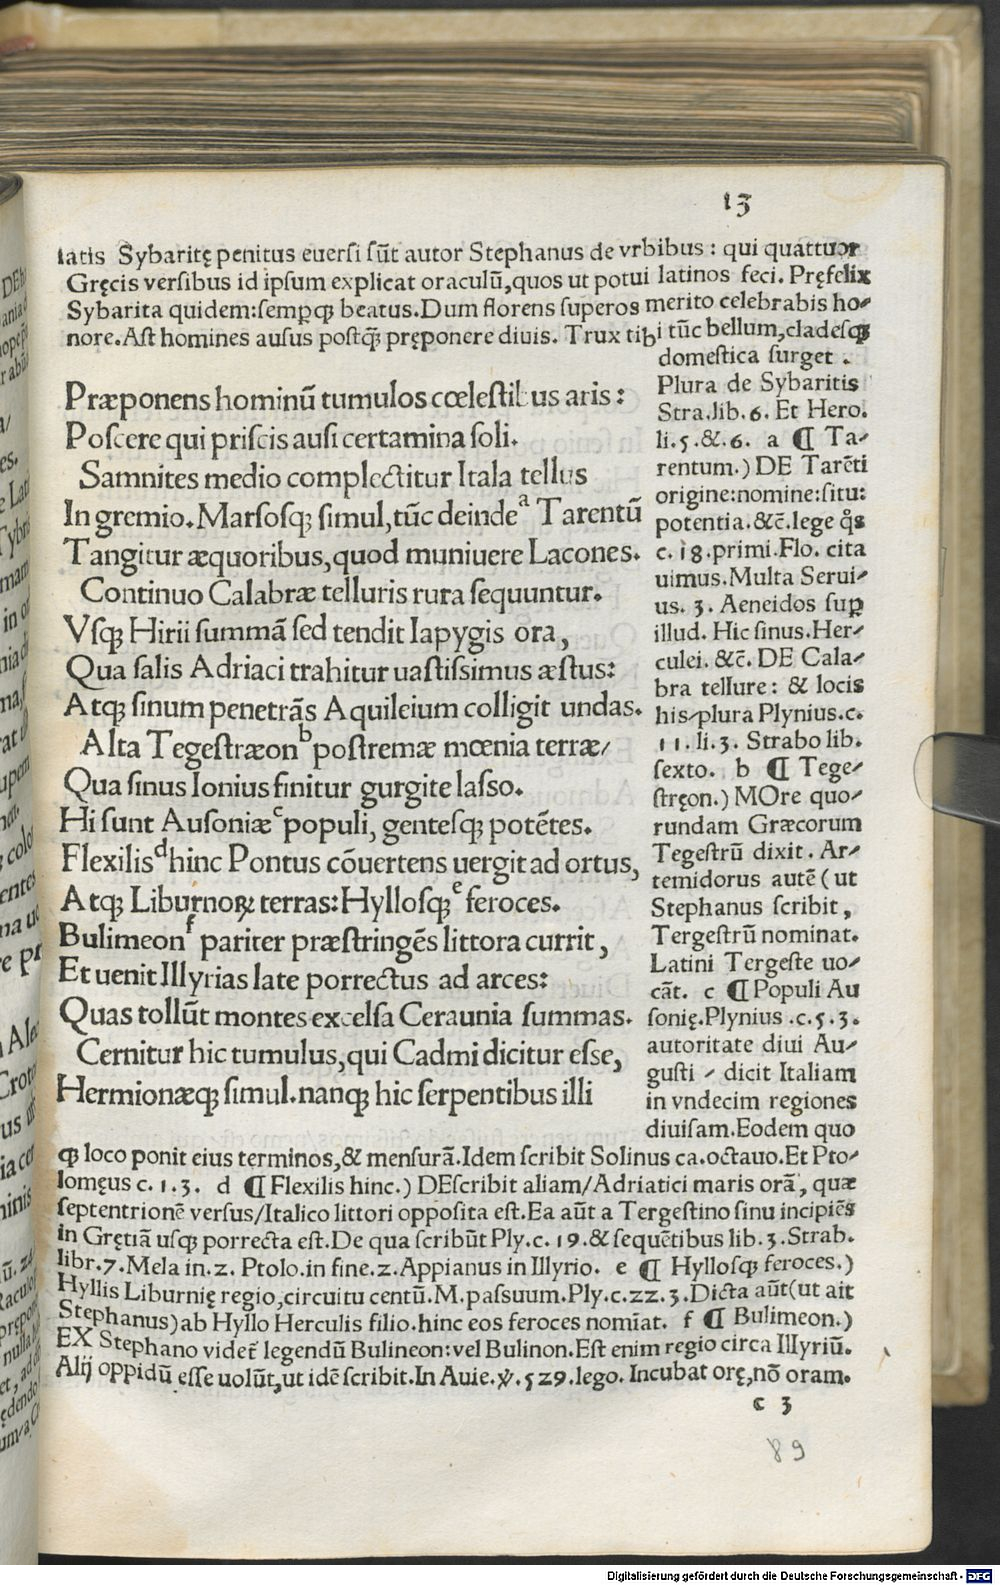 13
latis Sybaritę penitus euersi sũt autor Stephanus de vrbibus : qui quattuor
Gręcis versibus id ipsum explicat oraculũ,quos ut potui latinos feci. Pręfelix
Sybarita quidem:semꝑꝗ beatus.Dum florens superos merito celebrabis ho⸗
nore.Ast homines ausus postꝗ̃ pręponere diuis. Trux tibi tũc bellum,cladesꝗ
domestica surget .
Præponens hominũ tumulos cœlestibus aris :
Poscere qui priscis ausi certamina soli.
Samnites medio complectitur Itala tellus
In gremio.Marsosꝗ simul,tũc deinde a Tarentũ
Tangitur æquoribus,quod muniuere Lacones.
Continuo Calabræ telluris rura sequuntur.
Vsꝗ Hirii summã sed tendit Iapygis ora,
Qua salis Adriaci trahitur uastissimus æstus:
Atꝗ sinum penetrãs Aquileium colligit undas.
Alta Tegestræon b postremæ mœnia terræ/
Qua sinus Ionius finitur gurgite lasso.
Hi sunt Ausoniæ c populi, gentesꝗ potẽtes.
Flexilis d hinc Pontus cõuertens uergit ad ortus,
Atꝗ Liburnoꝝ terras:Hyllosꝗ e feroces.
Bulimeon f pariter præstringẽs littora currit,
Et uenit Illyrias late porrectus ad arces:
Quas tollũt montes excelsa Ceraunia summas.
Cernitur hic tumulus,qui Cadmi dicitur esse,
Hermionæꝗ simul.nanꝗ hic serpentibus illi
Plura de Sybaritis
Stra.lib.6. Et Hero.
li.5.&.6. a ¶ Ta⸗
rentum.) DE Tarẽti
origine:nomine:situ:
potentia.&c̃.lege q̊s
c.18.primi.Flo. cita
uimus.Multa Serui⸗
us. 3. Aeneidos suꝑ
illud. Hic sinus.Her⸗
culei. &c̃. DE Cala⸗
bra tellure: & locis
his⸗plura Plynius.c.
11.li.3. Strabo lib.
sexto. b ¶ Tege⸗
stręon.) MOre quo⸗
rundam Græcorum
Tegestrũ dixit. Ar⸗
temidorus autẽ ( ut
Stephanus scribit ,
Tergestrũ nominat.
Latini Tergeste uo⸗
cãt. c ¶ Populi Au
sonię.Plynius .c.5.3.
autoritate diui Au⸗
gusti ⸗ dicit Italiam
in vndecim regiones
diuisam.Eodem quo
ꝗ loco ponit eius terminos,& mensurã.Idem scribit Solinus ca.octauo.Et Pto⸗
lomęus c.1.3. d ¶ Flexilis hinc.) DEscribit aliam/Adriatici maris orã, quæ
septentrionẽ versus/Italico littori opposita est.Ea aũt a Tergestino sinu incipiẽs
in Grętiã usꝗ porrecta est.De qua scribũt Ply.c.19.& sequẽtibus lib.3.Strab.
libr.7.Mela in.2. Ptolo.in fine.2.Appianus in Illyrio. e ¶ Hyllosꝗ feroces.)
Hyllis Liburnię regio,circuitu centũ.M.passuum.Ply.c.22.3.Dicta aũt(ut ait
Stephanus)ab Hyllo Herculis filio.hinc eos feroces nomĩat. f ¶ Bulimeon.)
EX Stephano videt̃ legendũ Bulineon:vel Bulinon.Est enim regio circa Illyriũ.
Alij oppidũ esse uolũt,ut idẽ scribit.In Auie.ꝟ.529.lego. Incubat orę,nõ oram.
c 3
89
Digitalisierung gefördert durch die Deutsche Forschungsgemeinschaft - DFG